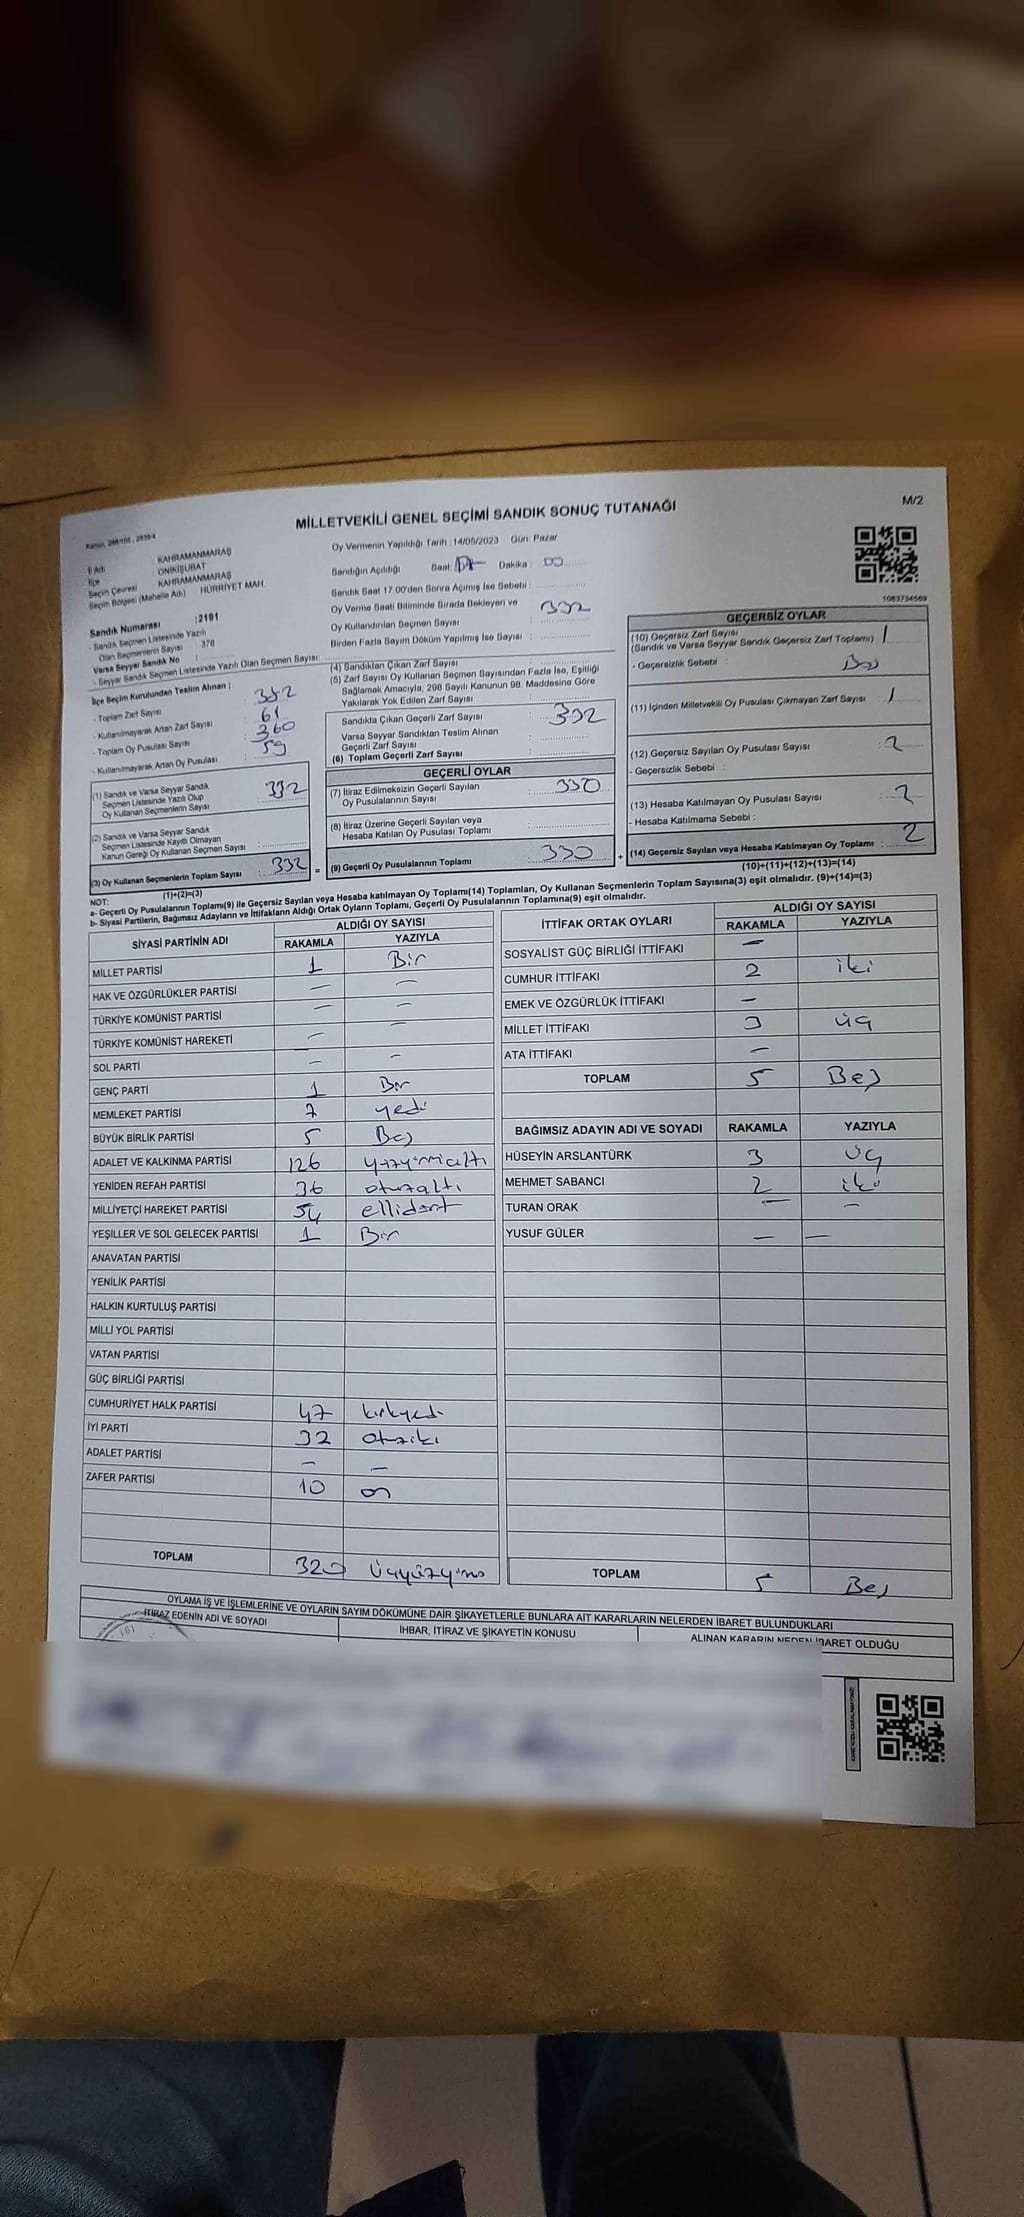 M/2
MİLLETVEKİLİ GENEL SEÇİMİ SANDIK SONUÇ TUTANAĞI
İl Adı : KAHRAMANMARAŞ
İlçe : ONİKİŞUBAT
Seçim Çevresi : KAHRAMANMARAŞ
Seçim Bölgesi (Mahalle Adı) HÜRRİYET MAH.
Sandık Numarası :2191
- Sandık Seçmen Listesinde Yazılı
Olan Seçmenlerin Sayısı : 378
Varsa Seyyar Sandık No :
- Seyyar Sandık Seçmen Listesinde Yazılı Olan Seçmen Sayısı:
İlçe Seçim Kurulundan Teslim Alınan :
- Toplam Zarf Sayısı
- Kullanılmayarak Artan Zarf Sayısı 61
- Toplam Oy Pusulası Sayısı 360
- Kullanılmayarak Artan Oy Pusulası 59
(1) Sandık ve Varsa Seyyar Sandık
Seçmen Listesinde Yazılı Olup
Oy Kullanan Seçmenlerin Sayısı : 332
(2) Sandık ve Varsa Seyyar Sandık
Seçmen Listesinde Kayıtlı Olmayan
Kanun Gereği Oy Kullanan Seçmen Sayısı :
(3) Oy Kullanan Seçmenlerin Toplam Sayısı : 332
(1)+(2)=(3)
Oy Vermenin Yapıldığı Tarih : 14/05/2023 Gün: Pazar
Sandığın Açıldığı Saat : 17 Dakika : 00
Sandık Saat 17.00'den Sonra Açılmış İse Sebebi :
Oy Verme Saati Bitiminde Sırada Bekleyen ve
Oy Kullandırılan Seçmen Sayısı : 332
Birden Fazla Sayım Döküm Yapılmış İse Sayısı :
(4) Sandıktan Çıkan Zarf Sayısı :
(5) Zarf Sayısı Oy Kullanan Seçmen Sayısından Fazla İse, Eşitliği
Sağlamak Amacıyla, 298 Sayılı Kanunun 98. Maddesine Göre
Yakılarak Yok Edilen Zarf Sayısı :
Sandıkta Çıkan Geçerli Zarf Sayısı : 332
Varsa Seyyar Sandıktan Teslim Alınan
Geçerli Zarf Sayısı :
(6) Toplam Geçerli Zarf Sayısı :
GEÇERLİ OYLAR
(7) İtiraz Edilmeksizin Geçerli Sayılan
Oy Pusulalarının Sayısı : 330
(8) İtiraz Üzerine Geçerli Sayılan veya
Hesaba Katılan Oy Pusulası Toplamı :
(9) Geçerli Oy Pusulalarının Toplamı : 330
1083734569
GEÇERSİZ OYLAR
(10) Geçersiz Zarf Sayısı
(Sandık ve Varsa Seyyar Sandık Geçersiz Zarf Toplamı) : 1
- Geçersizlik Sebebi : Boş
(11) İçinden Milletvekili Oy Pusulası Çıkmayan Zarf Sayısı : 1
(12) Geçersiz Sayılan Oy Pusulası Sayısı : 2
- Geçersizlik Sebebi :
(13) Hesaba Katılmayan Oy Pusulası Sayısı : 2
- Hesaba Katılmama Sebebi :
(14) Geçersiz Sayılan veya Hesaba Katılmayan Oy Toplamı : 2
(10)+(11)+(12)+(13)=(14)
NOT:
a- Geçerli Oy Pusulalarının Toplamı(9) ile Geçersiz Sayılan veya Hesaba katılmayan Oy Toplamı(14) Toplamları, Oy Kullanan Seçmenlerin Toplam Sayısına(3) eşit olmalıdır. (9)+(14)=(3)
b- Siyasi Partilerin, Bağımsız Adayların ve İttifakların Aldığı Ortak Oyların Toplamı, Geçerli Oy Pusulalarının Toplamına(9) eşit olmalıdır.
SİYASİ PARTİNİN ADI ALDIĞI OY SAYISI
RAKAMLA YAZIYLA
MİLLET PARTİSİ 1 Bir
HAK VE ÖZGÜRLÜKLER PARTİSİ – –
TÜRKİYE KOMÜNİST PARTİSİ – –
TÜRKİYE KOMÜNİST HAREKETİ – –
SOL PARTİ – –
GENÇ PARTİ 1 Bir
MEMLEKET PARTİSİ 7 yedi
BÜYÜK BİRLİK PARTİSİ 5 Beş
ADALET VE KALKINMA PARTİSİ 126 yüzyirmialtı
YENİDEN REFAH PARTİSİ 36 otuzaltı
MİLLİYETÇİ HAREKET PARTİSİ 54 ellidört
YEŞİLLER VE SOL GELECEK PARTİSİ 1 Bir
ANAVATAN PARTİSİ
YENİLİK PARTİSİ
HALKIN KURTULUŞ PARTİSİ
MİLLİ YOL PARTİSİ
VATAN PARTİSİ
GÜÇ BİRLİĞİ PARTİSİ
CUMHURİYET HALK PARTİSİ 47 kırkyedi
İYİ PARTİ 32 otuziki
ADALET PARTİSİ – –
ZAFER PARTİSİ 10 on
TOPLAM 320 üçyüzyirmi
İTTİFAK ORTAK OYLARI ALDIĞI OY SAYISI
RAKAMLA YAZIYLA
SOSYALİST GÜÇ BİRLİĞİ İTTİFAKI –
CUMHUR İTTİFAKI 2 iki
EMEK VE ÖZGÜRLÜK İTTİFAKI –
MİLLET İTTİFAKI 3 üç
ATA İTTİFAKI –
TOPLAM 5 Beş
BAĞIMSIZ ADAYIN ADI VE SOYADI RAKAMLA YAZIYLA
HÜSEYİN ARSLANTÜRK 3 üç
MEHMET SABANCI 2 iki
TURAN ORAK – –
YUSUF GÜLER – –
TOPLAM 5 Beş
OYLAMA İŞ VE İŞLEMLERİNE VE OYLARIN SAYIM DÖKÜMÜNE DAİR ŞİKAYETLERLE BUNLARA AİT KARARLARIN NELERDEN İBARET BULUNDUKLARI
İTİRAZ EDENİN ADI VE SOYADI İHBAR, İTİRAZ VE ŞİKAYETİN KONUSU ALINAN KARARIN NEDEN İBARET OLDUĞU